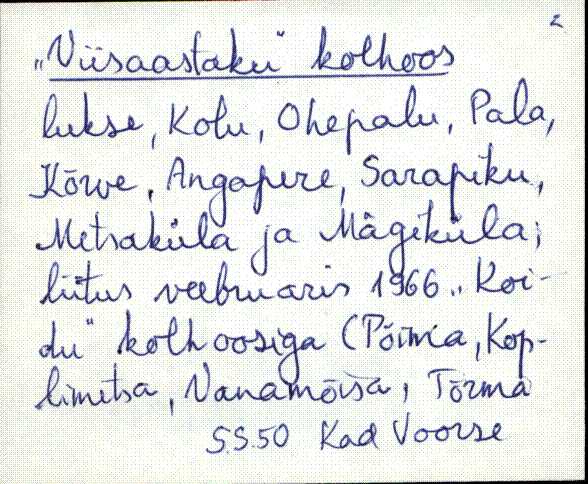 2
„Viisaastaku" kolhoos
lukse, Kolu, Ohepalu, Pala,
Kõrve, Angapere, Sarapiku,
Metsaküla ja Mägiküla;
liitus veebruaris 1966 „Koi-
du" kolhoosiga (Põima, Kop-
limetsa, Vanamõisa, Tõrma
S.S.50 Kad Voorse